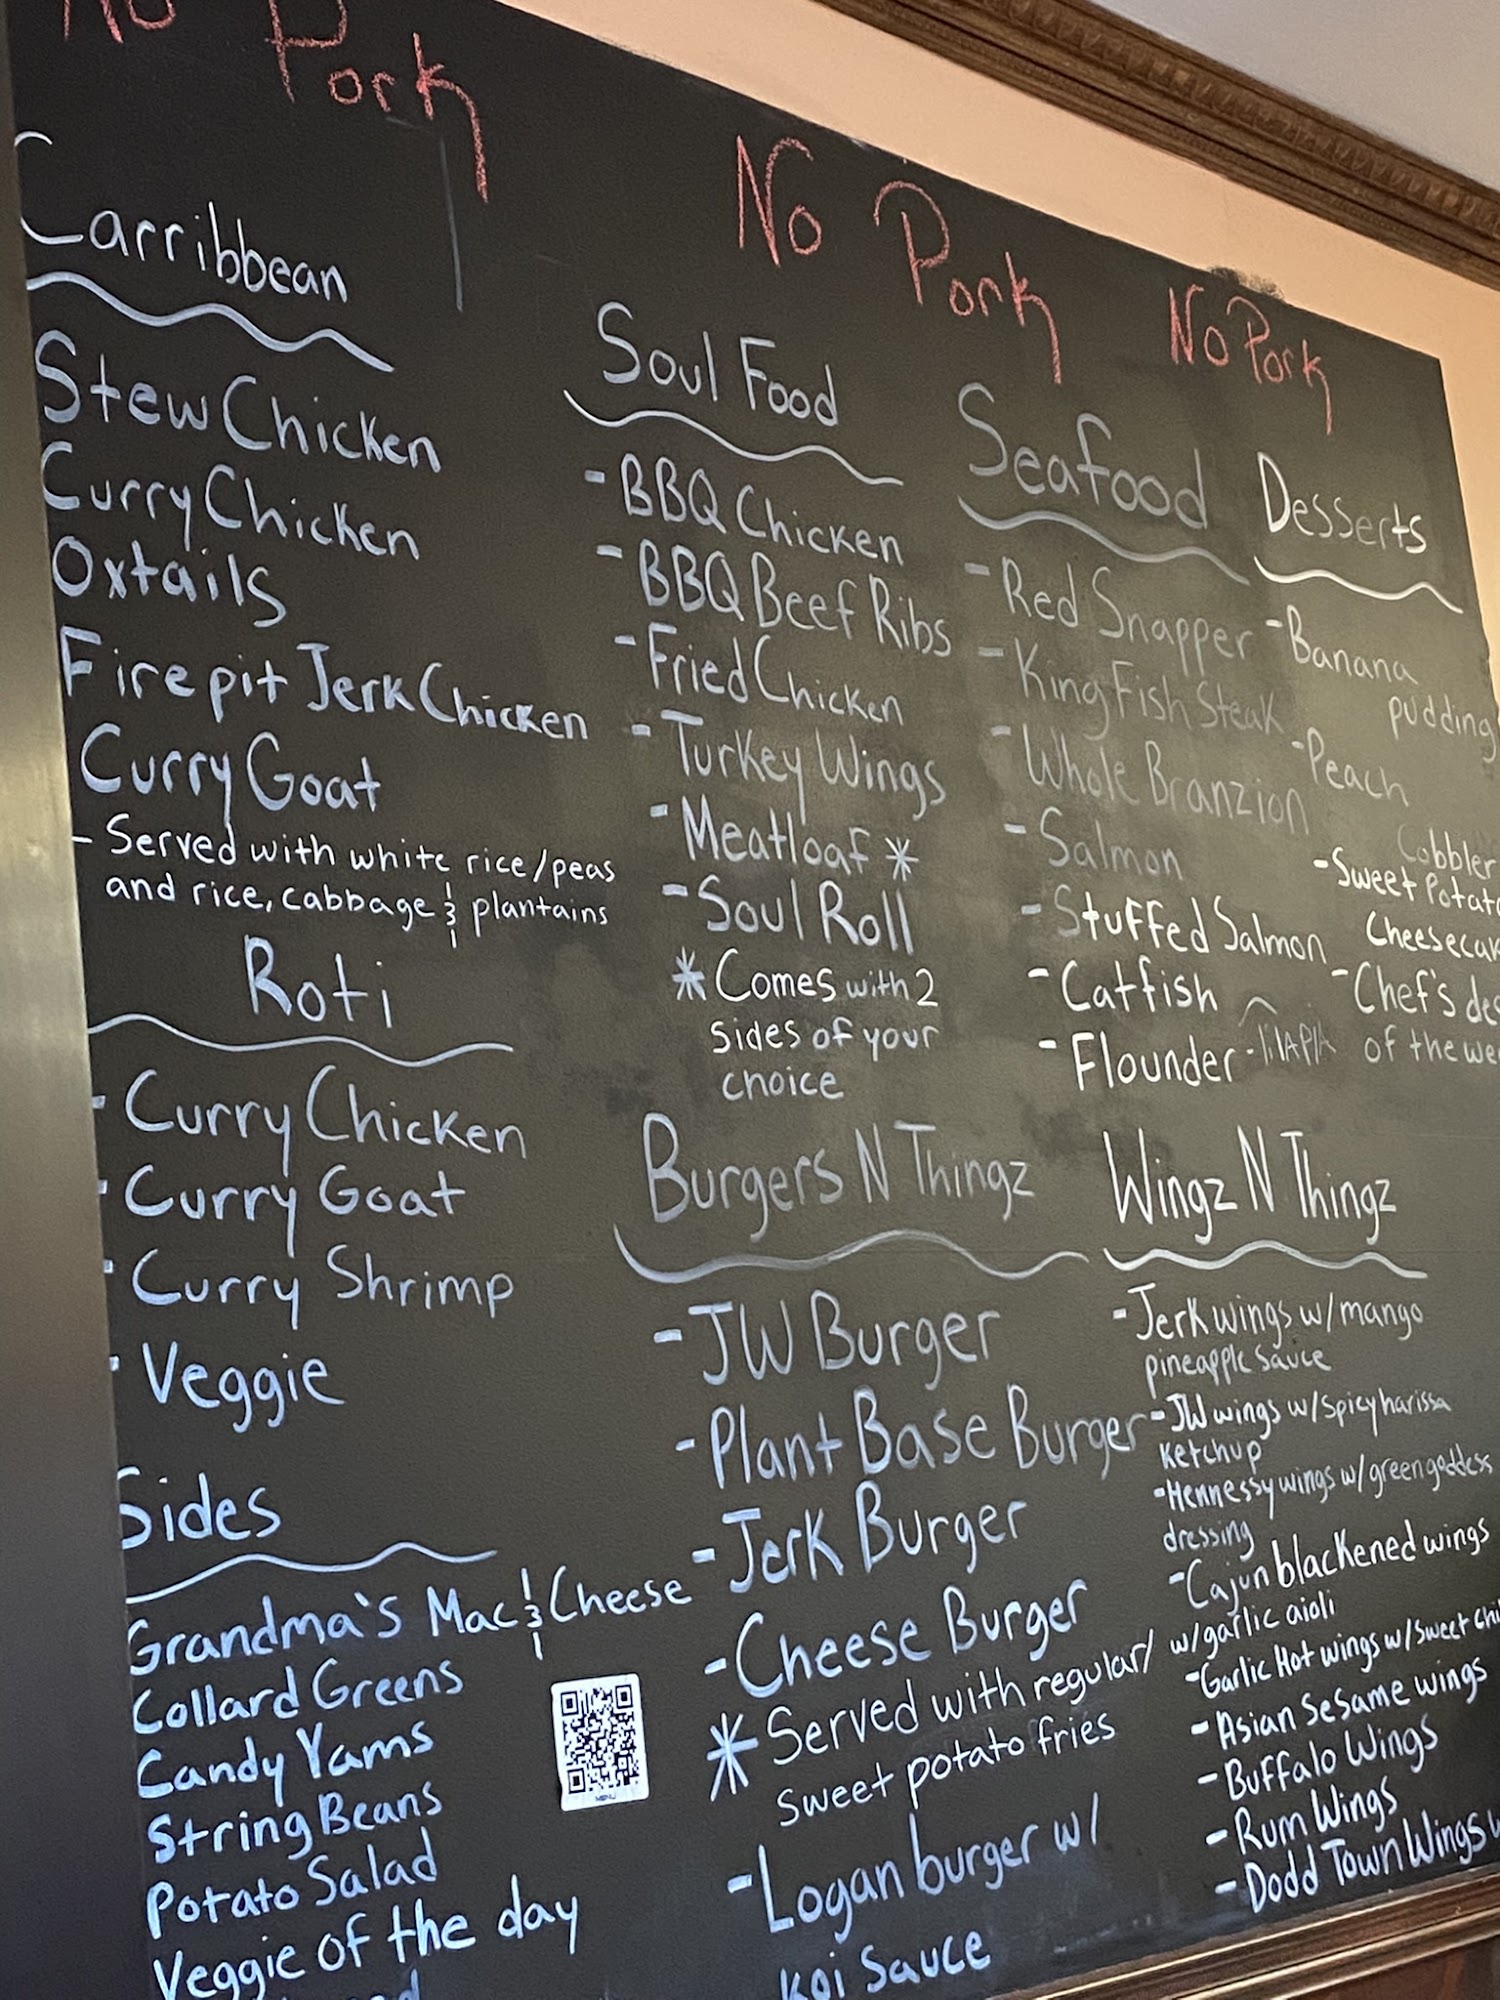 No Pork
No Pork
No Pork
Carribbean
Stew Chicken
Curry Chicken
Oxtails
Firepit Jerk Chicken
Curry Goat
- Served with white rice/peas
and rice, cabbage & plantains
Roti
- Curry Chicken
- Curry Goat
- Curry Shrimp
- Veggie
Sides
Grandma's Mac & Cheese
Collard Greens
Candy Yams
String Beans
Potato Salad
Veggie of the day
MENU
Soul Food
- BBQ Chicken
- BBQ Beef Ribs
- Fried Chicken
- Turkey Wings
- Meatloaf *
- Soul Roll
* Comes with 2
sides of your
choice
Burgers N Thingz
- JW Burger
- Plant Base Burger
- Jerk Burger
- Cheese Burger
* Served with regular/
sweet potato fries
- Logan burger w/
Koi Sauce
Seafood
- Red Snapper
- King Fish Steak
- Whole Branzion
- Salmon
- Stuffed Salmon
- Catfish
- Flounder - TilAPIA
Desserts
- Banana
pudding
- Peach
Cobbler
- Sweet Potato
Cheesecak
- Chef's des
of the wee
Wingz N Thingz
- Jerk wings w/ mango
pineapple sauce
- JW wings w/ spicy harissa
ketchup
- Hennessy wings w/ green goddess
dressing
- Cajun blackened wings
w/ garlic aioli
- Garlic Hot wings w/ Sweet chi
- Asian Sesame wings
- Buffalo Wings
- Rum Wings
- Dodd Town Wings w